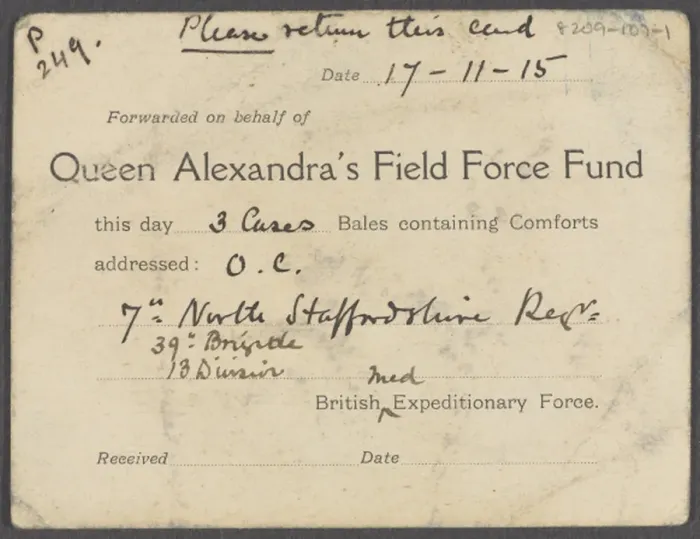 P
249.
Please return this card
8209-109-1
Date 17-11-15
Forwarded on behalf of
Queen Alexandra's Field Force Fund
this day 3 Cases Bales containing Comforts
addressed: O.C.
7th North Staffordshire Regt.
39th Brigade
13 Division
Med
British ^ Expeditionary Force.
Received Date